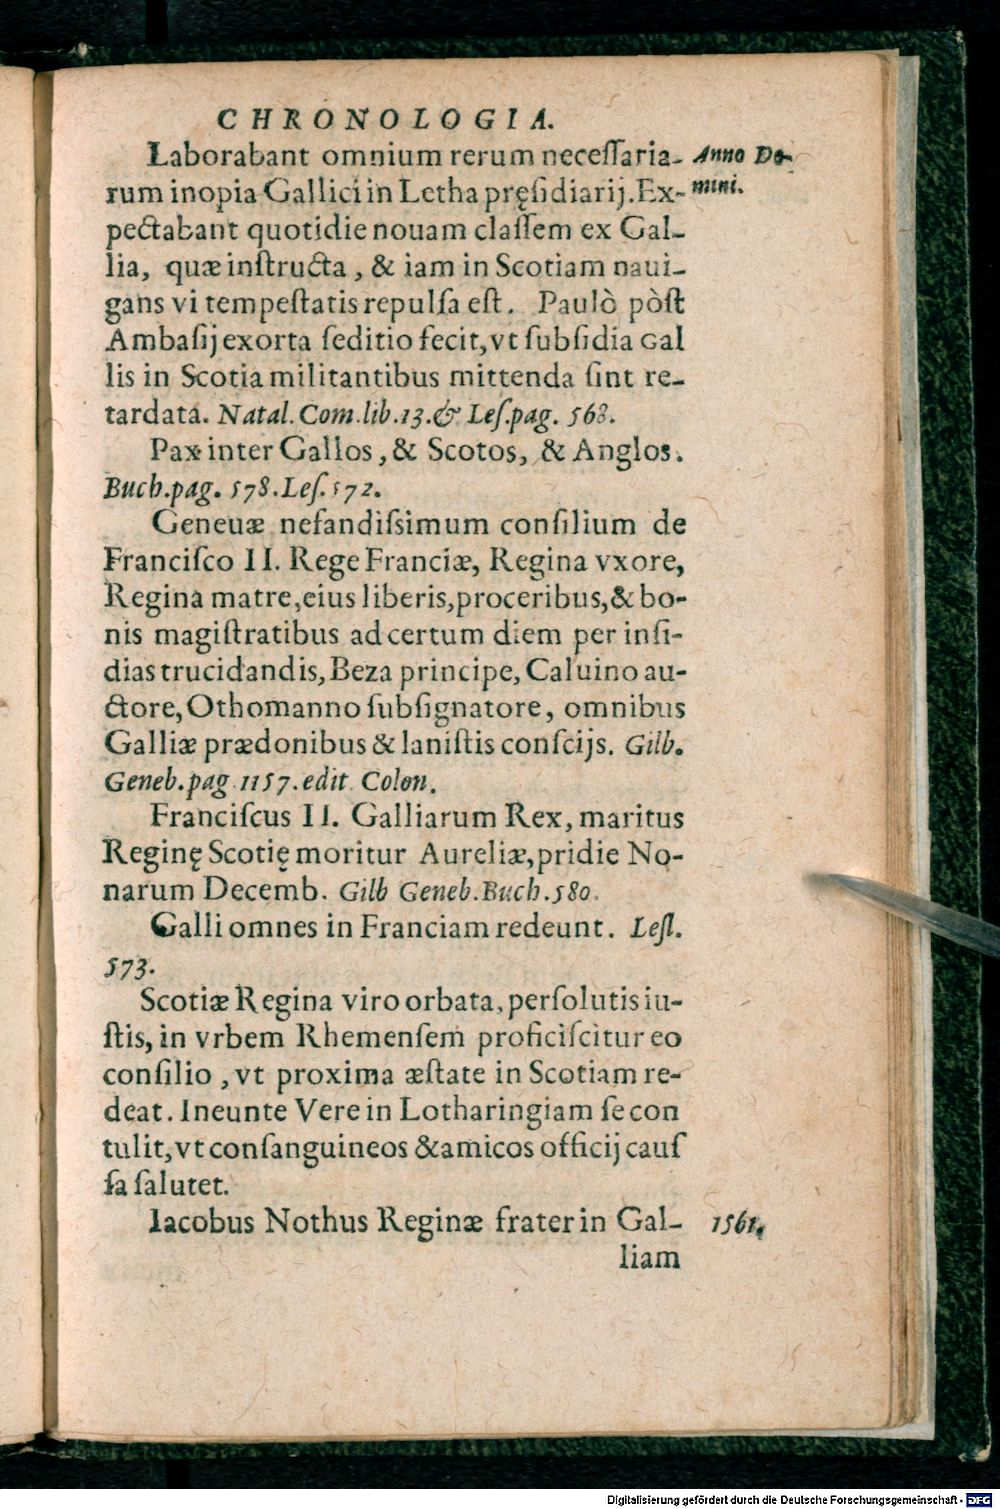 CHRONOLOGIA.
Laborabant omnium rerum neceſſaria- Anno Do-
rum inopia Gallici in Letha pręſidiarij. Ex- mini.
pectabant quotidie nouam claſſem ex Gal-
lia, quæ inſtructa, & iam in Scotiam naui-
gans vi tempeſtatis repulſa eſt. Paulò pòſt
Ambaſij exorta ſeditio fecit, vt ſubſidia Gal
lis in Scotia militantibus mittenda ſint re-
tardata. Natal. Com. lib. 13. & Leſ. pag. 568.
Pax inter Gallos, & Scotos, & Anglos.
Buch. pag. 578. Leſ. 572.
Geneuæ nefandiſsimum conſilium de
Franciſco II. Rege Franciæ, Regina vxore,
Regina matre, eius liberis, proceribus, & bo-
nis magiſtratibus ad certum diem per inſi-
dias trucidandis, Beza principe, Caluino au-
ctore, Othomanno ſubſignatore, omnibus
Galliæ prædonibus & laniſtis conſcijs. Gilb.
Geneb. pag. 1157. edit. Colon.
Franciſcus II. Galliarum Rex, maritus
Reginę Scotię moritur Aureliæ, pridie No-
narum Decemb. Gilb Geneb. Buch. 580.
Galli omnes in Franciam redeunt. Leſl.
573.
Scotiæ Regina viro orbata, perſolutis iu-
ſtis, in vrbem Rhemenſem proficiſcitur eo
conſilio, vt proxima æſtate in Scotiam re-
deat. Ineunte Vere in Lotharingiam ſe con
tulit, vt conſanguineos & amicos officij cauſ
ſa ſalutet.
Iacobus Nothus Reginæ frater in Gal- 1561.
liam
Digitalisierung gefördert durch die Deutsche Forschungsgemeinschaft - DFG